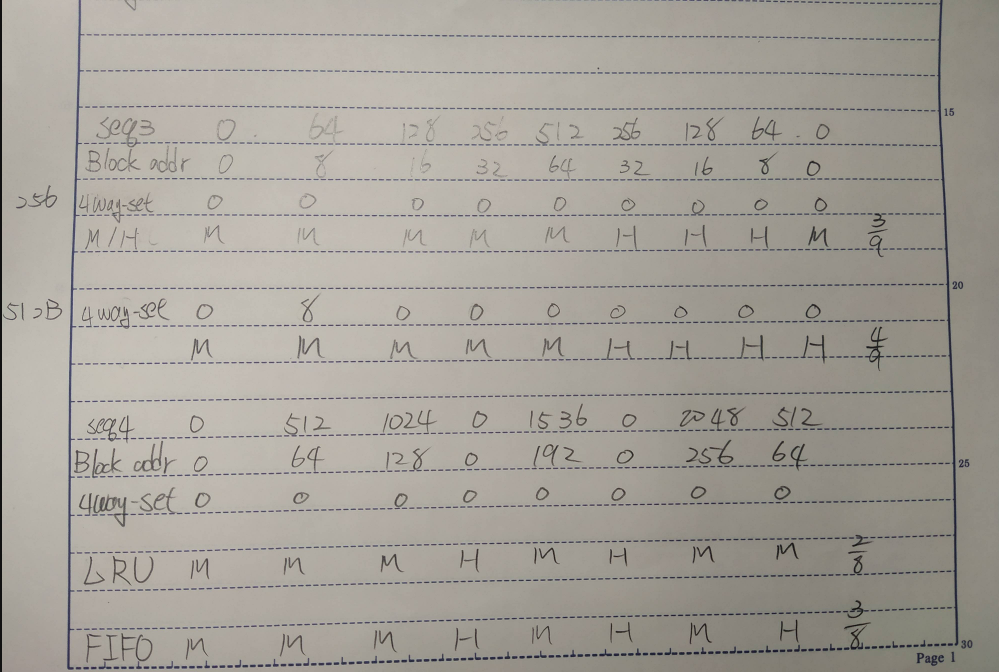 15
seq3 0 64 128 256 512 256 128 64 0
Block addr 0 8 16 32 64 32 16 8 0
256 4way-set 0 0 0 0 0 0 0 0 0
M/H M M M M M H H H M 3/9
20
512B 4way-set 0 8 0 0 0 0 0 0 0
M M M M M H H H H 4/9
seq4 0 512 1024 0 1536 0 2048 512
Block addr 0 64 128 0 192 0 256 64
25
4way-set 0 0 0 0 0 0 0 0
LRU M M M H M H M M 2/8
FIFO M M M H M H M H 3/8
30
Page 1